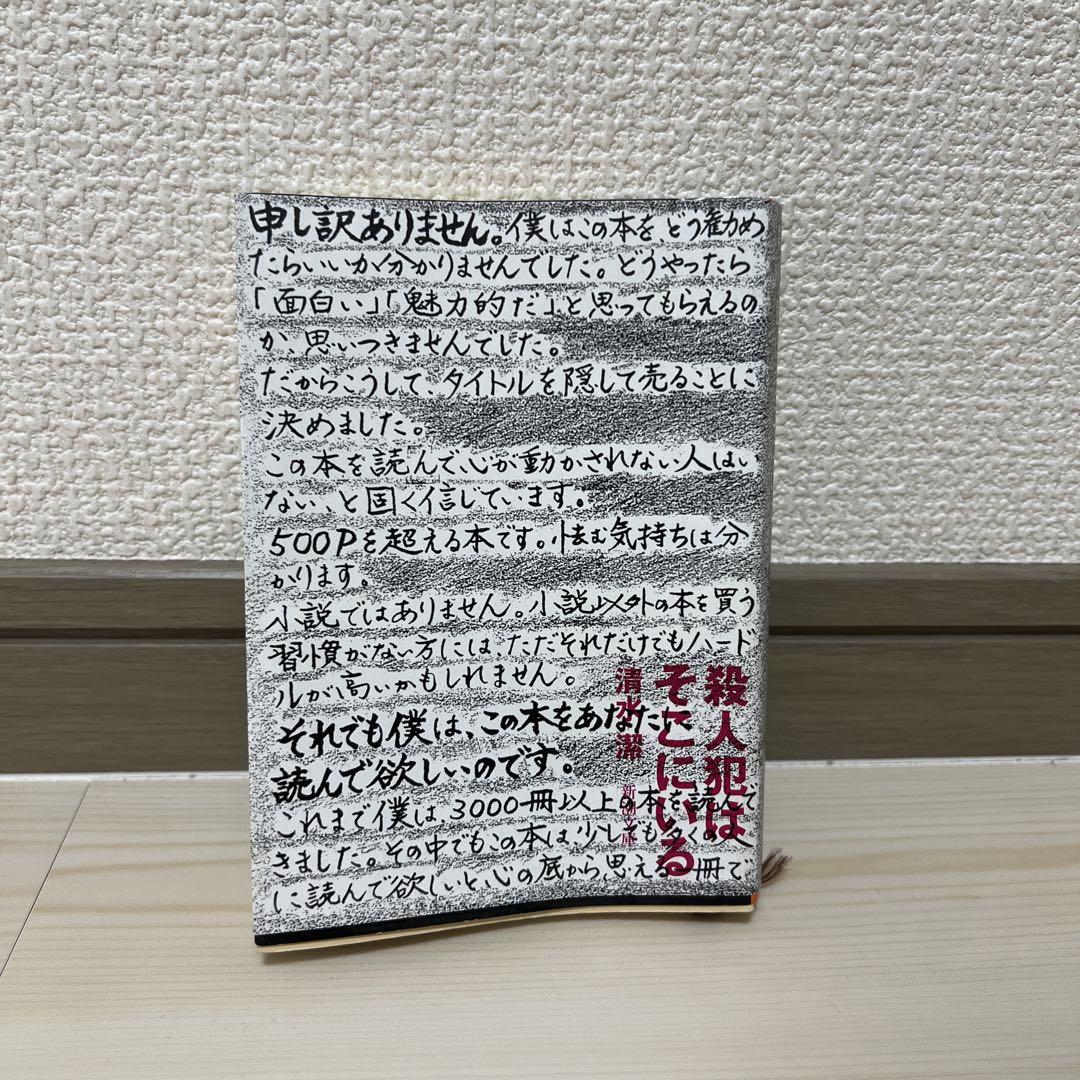 申し訳ありません。僕はこの本をどう勧め
たらいいか分かりませんでした。どうやったら
「面白い」「魅力的だ」と思ってもらえるの
か、思いつきませんでした。
だからこうして、タイトルを隠して売ることに
決めました。
この本を読んで、心が動かされない人はい
ない、と固く信じています。
500Pを超える本です。怯む気持ちは分
かります。
小説ではありません。小説以外の本を買う
習慣がない方には、ただそれだけでもハード
ルが高いかもしれません。
それでも僕は、この本をあなたに
読んで欲しいのです。
これまで僕は、3000冊以上の本を読んで
きました。その中でもこの本は、少しでも多くの人
に読んで欲しいと心の底から思える一冊で
殺人犯は
そこにいる
清水潔
新潮文庫